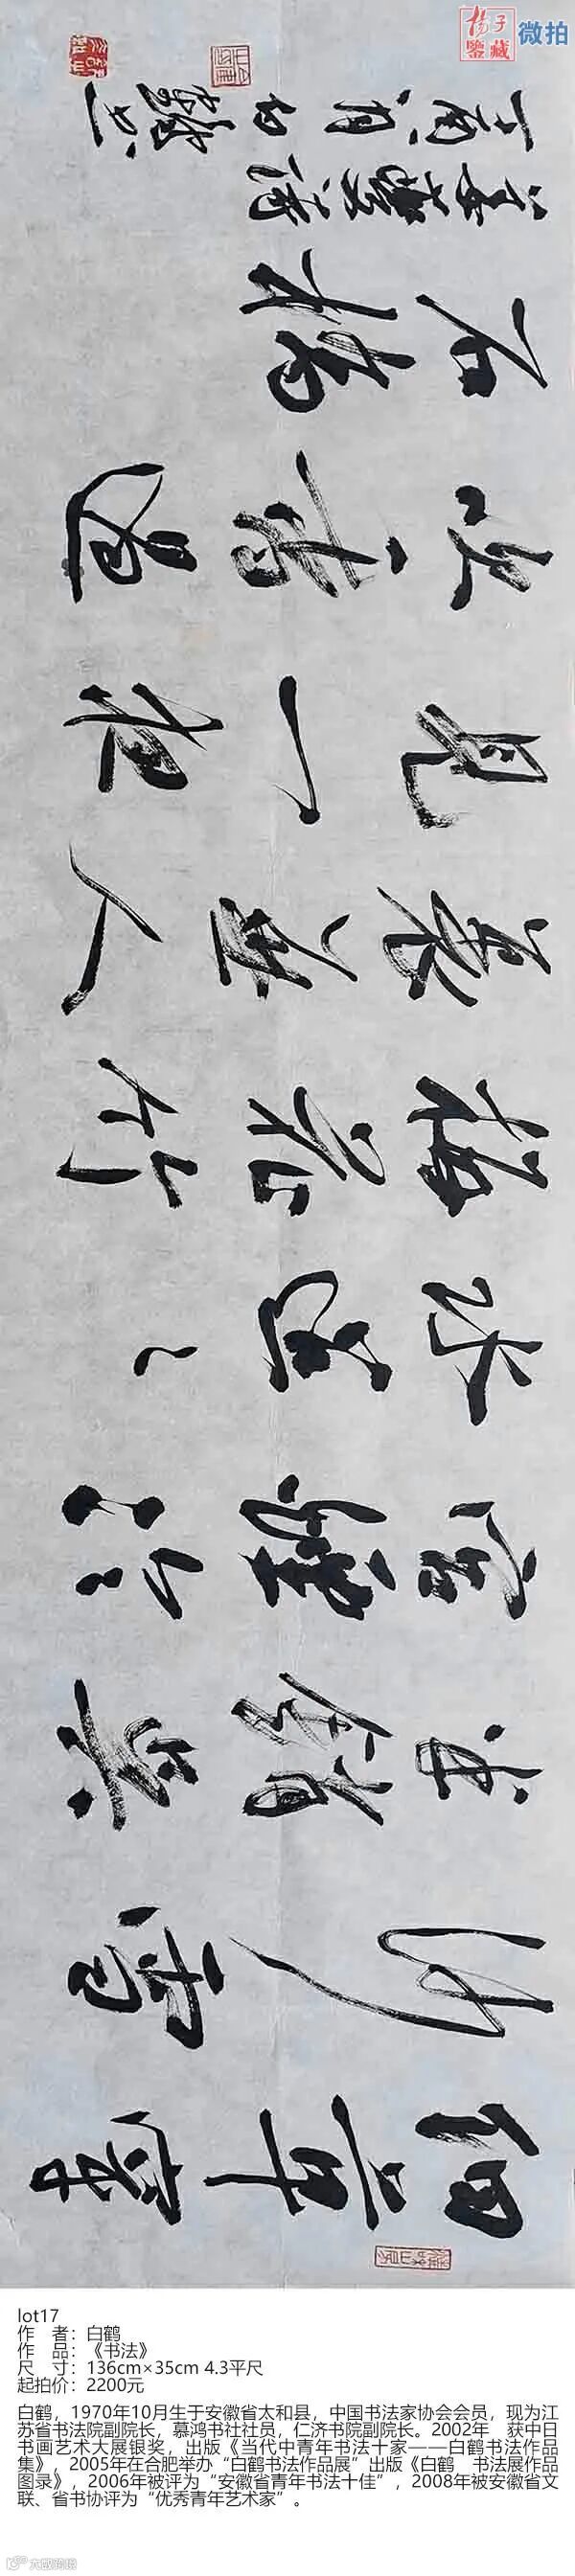 杨子
鉴藏
微拍
細草穿
沙雪
半銷吳
宮煙冷
水迢〻
梅花竹
裏無人
見一夜
吹香過
石橋
姜夔詩
白鶴書
lot17
作 者：白鹤
作 品：《书法》
尺 寸：136cm×35cm 4.3平尺
起拍价：2200元
白鹤，1970年10月生于安徽省太和县，中国书法家协会会员，现为江
苏省书法院副院长，慕鸿书社社员，仁济书院副院长。2002年 获中日
书画艺术大展银奖，出版《当代中青年书法十家——白鹤书法作品
集》，2005年在合肥举办“白鹤书法作品展”出版《白鹤 书法展作品
图录》，2006年被评为“安徽省青年书法十佳”，2008年被安徽省文
联、省书协评为“优秀青年艺术家”。